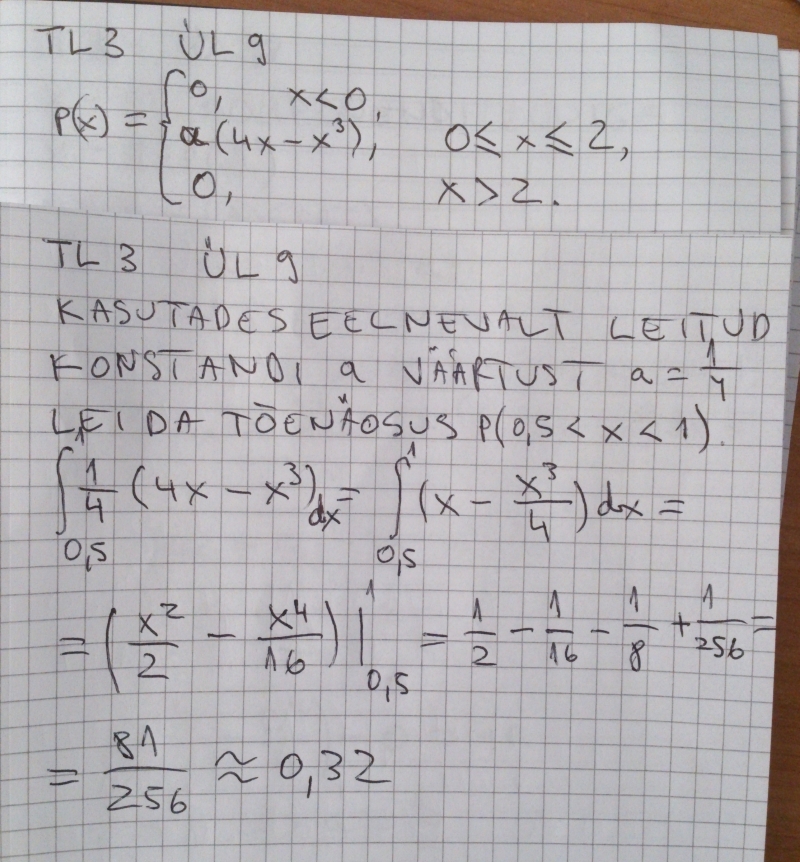 TL3 ÜL 9
p(x) = { 0, x<0,
a(4x-x³), 0≤ x ≤ 2,
0, x > 2.
TL 3 ÜL 9
KASUTADES EELNEVALT LEITUD
KONSTANDI a VÄÄRTUST a = 1/4
LEIDA TÕENÄOSUS P(0,5 < x < 1).
∫_{0,5}^{1} 1/4 (4x - x³) dx = ∫_{0,5}^{1} (x - x³/4) dx =
= (x²/2 - x⁴/16) |_{0,5}^{1} = 1/2 - 1/16 - 1/8 + 1/256 =
= 81/256 ≈ 0,32